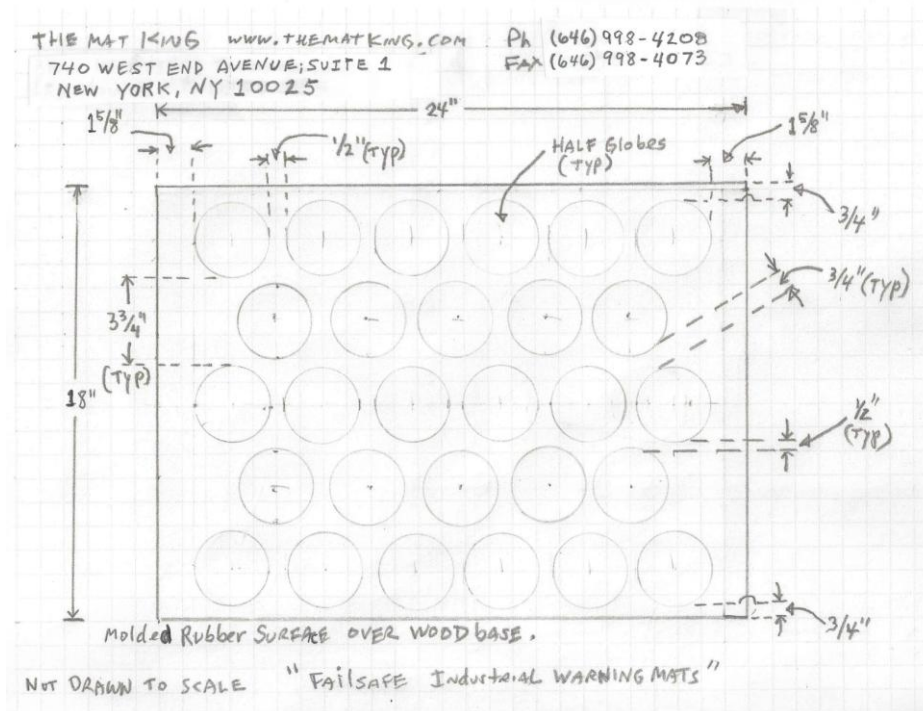 THE MAT KING www.THEMATKING.COM Ph (646) 998-4208
740 WEST END AVENUE; SUITE 1 FAX (646) 998-4073
NEW YORK, NY 10025
24"
1 5/8"
1/2" (TYP)
HALF Globes
(TYP)
1 5/8"
3/4"
3/4" (TYP)
3 3/4"
(TYP)
18"
1/2"
(TYP)
3/4"
Molded Rubber SURFACE OVER WOOD base.
NOT DRAWN TO SCALE "FAILSAFE Industrial WARNING MATS"